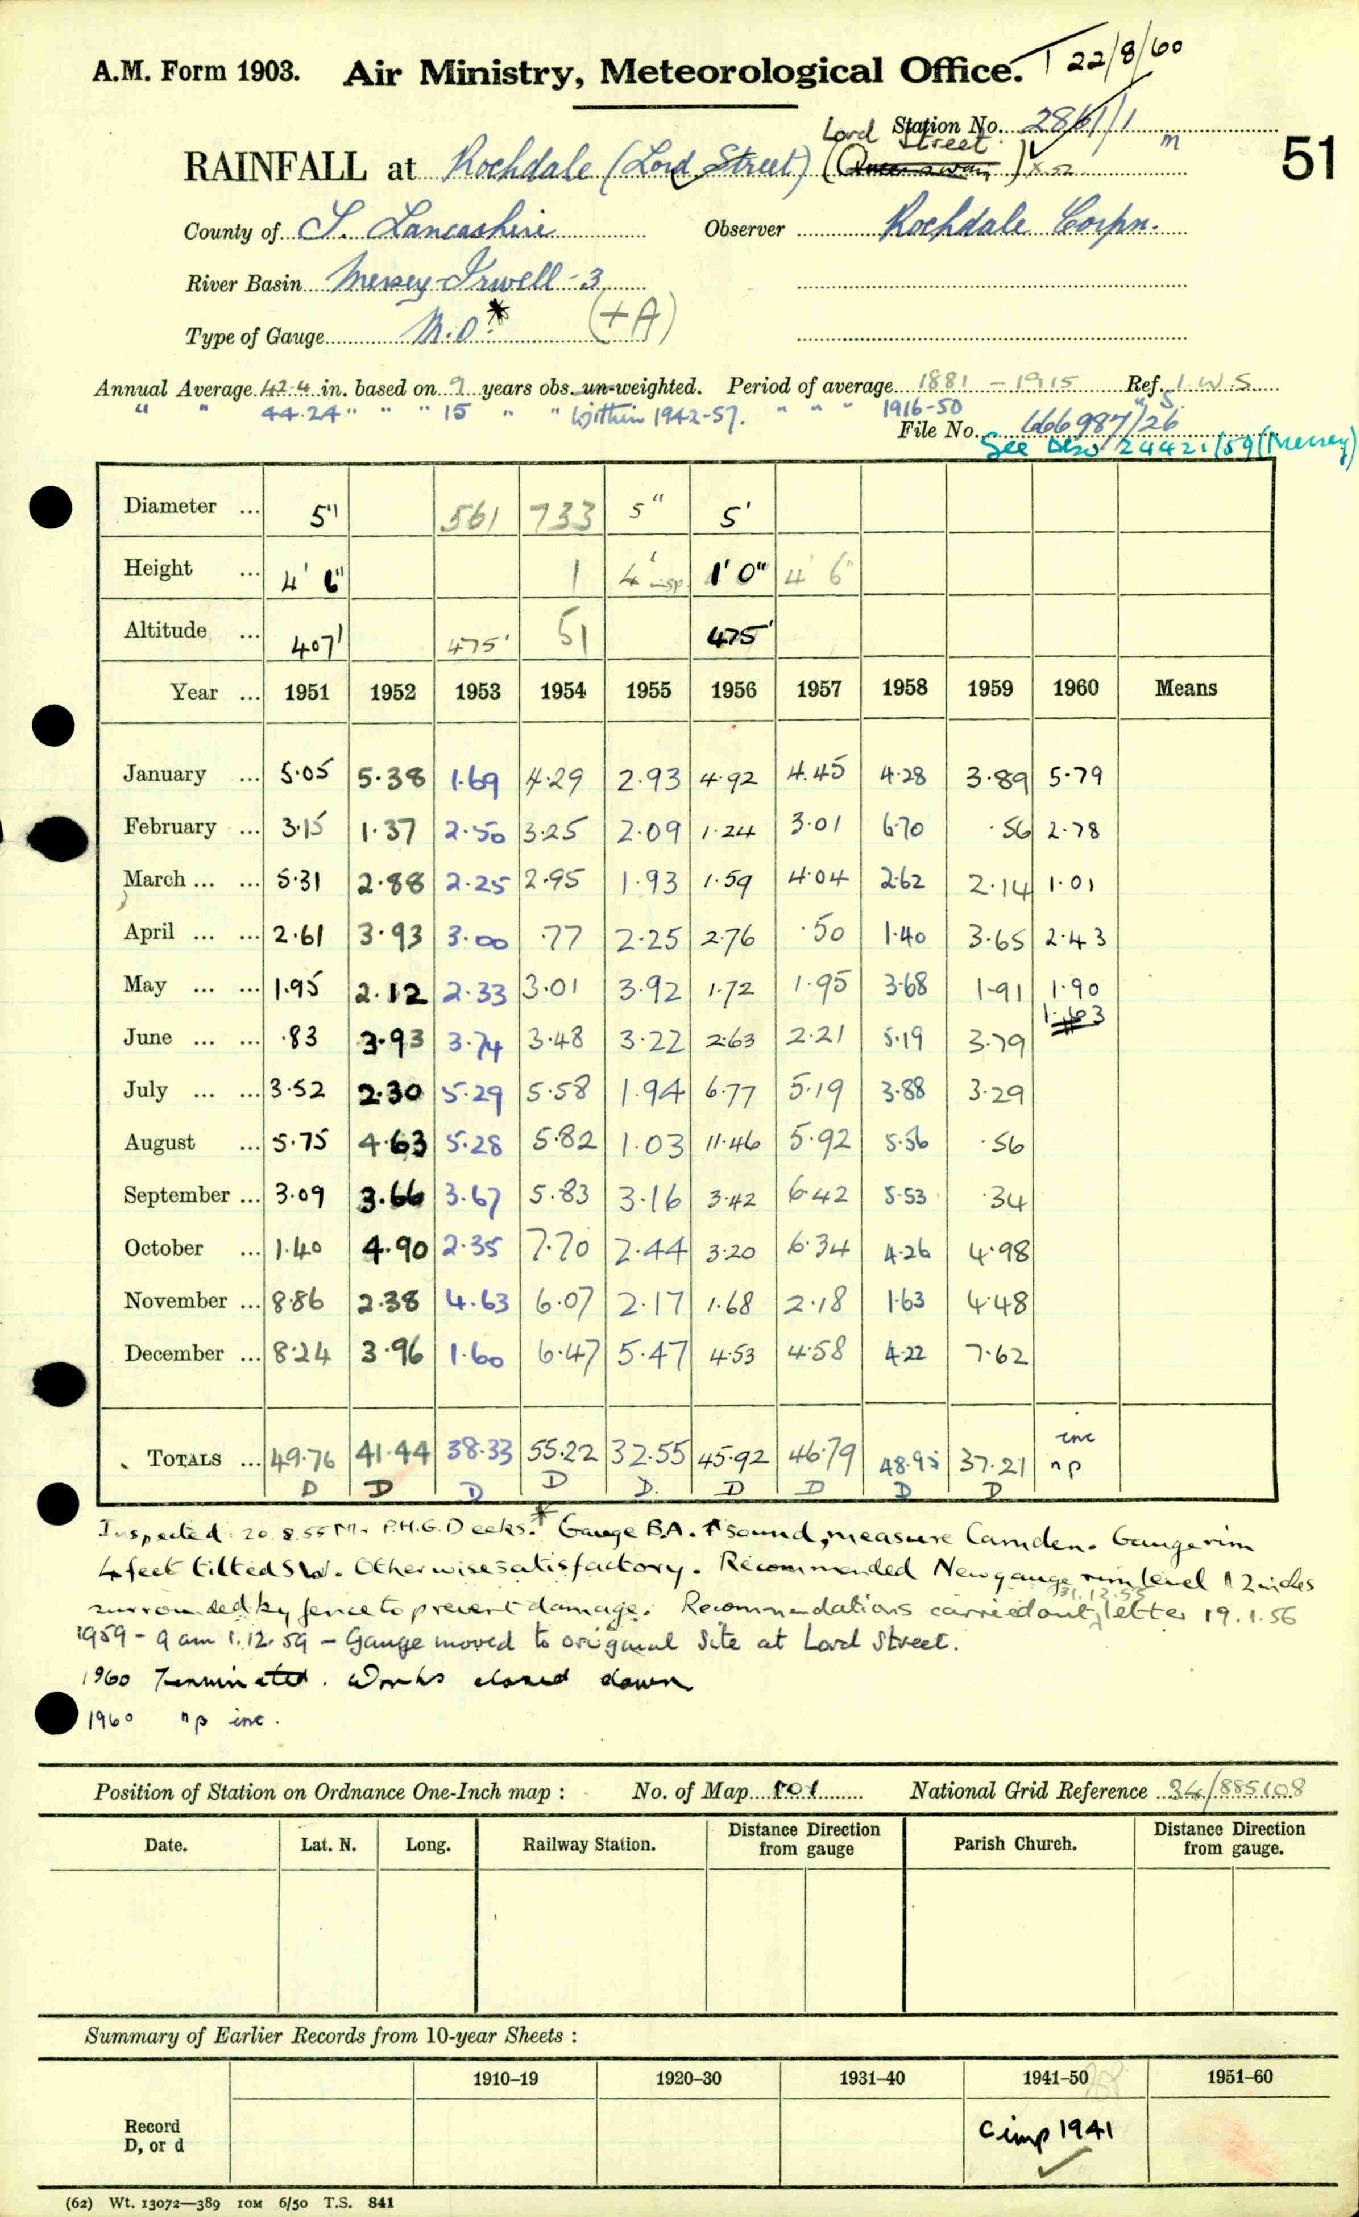 A.M. Form 1903. Air Ministry, Meteorological Office. T 22/8/60
Station No. 2861/1 m
Lord Street
RAINFALL at Rochdale (Lord Street) (Queensway) 51
County of S. Lancashire Observer Rochdale Corpn.
River Basin Mersey-Irwell-3
Type of Gauge M.O.* (+A)
Annual Average 42.4 in. based on 9 years obs. un-weighted. Period of average 1881 - 1915 Ref. I.W.S
" " 44.24 " " " 15 " " " Within 1942-57. " " " 1916-50 " S.
File No. 666987/26
See Also 24421/59 (Mersey)
Diameter ... 5" 561 733 5" 5'
Height ... 4' 6" 1 4' insp. 1' 0" 4' 6"
Altitude ... 407' 475' 51 475'
Year ... 1951 1952 1953 1954 1955 1956 1957 1958 1959 1960 Means
January ... 5.05 5.38 1.69 4.29 2.93 4.92 4.45 4.28 3.89 5.79
February ... 3.15 1.37 2.50 3.25 2.09 1.24 3.01 6.70 .56 2.78
March ... ... 5.31 2.88 2.25 2.95 1.93 1.59 4.04 2.62 2.14 1.01
April ... ... 2.61 3.93 3.00 .77 2.25 2.76 .50 1.40 3.65 2.43
May ... ... 1.95 2.12 2.33 3.01 3.92 1.72 1.95 3.68 1.91 1.90
June ... ... .83 3.93 3.74 3.48 3.22 2.63 2.21 5.19 3.79 1.63
July ... ... 3.52 2.30 5.29 5.58 1.94 6.77 5.19 3.88 3.29
August ... 5.75 4.63 5.28 5.82 1.03 11.46 5.92 5.56 .56
September ... 3.09 3.66 3.67 5.83 3.16 3.42 6.42 5.53 .34
October ... 1.40 4.90 2.35 7.70 2.44 3.20 6.34 4.26 4.98
November ... 8.86 2.38 4.63 6.07 2.17 1.68 2.18 1.63 4.48
December ... 8.24 3.96 1.60 6.47 5.47 4.53 4.58 4.22 7.62
TOTALS ... 49.76 41.44 38.33 55.22 32.55 45.92 46.79 48.95 37.21 inc np
D D D D D. D D D D
Inspected 20.8.55 Mr P.H.G. Deeks.* Gauge B.A. sound, measure Camden. Gauge rim
4 feet tilted SW. Otherwise satisfactory. Recommended New gauge rim level 12 inches
31.12.55
surrounded by fence to prevent damage. Recommendations carried out, letter 19.1.56
1959 - 9 am 1.12.59 - Gauge moved to original site at Lord Street.
1960 Terminated. Works closed down
1960 np inc.
Position of Station on Ordnance One-Inch map : No. of Map 101 National Grid Reference 34/885108
Date. Lat. N. Long. Railway Station. Distance Direction from gauge Parish Church. Distance Direction from gauge.
Summary of Earlier Records from 10-year Sheets :
1910–19 1920–30 1931–40 1941–50 1951–60
Record D, or d Cimp 1941
(62) Wt. 13072—389 10M 6/50 T.S. 841